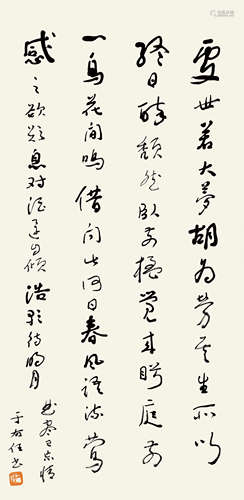 處世若大夢胡為勞其生所以
終日醉頹然臥前楹覺來眄庭前
一鳥花間鳴借問此何日春風語流鶯
感之欲歎息对酒還自傾浩歌待明月
曲盡已忘情
于右任書